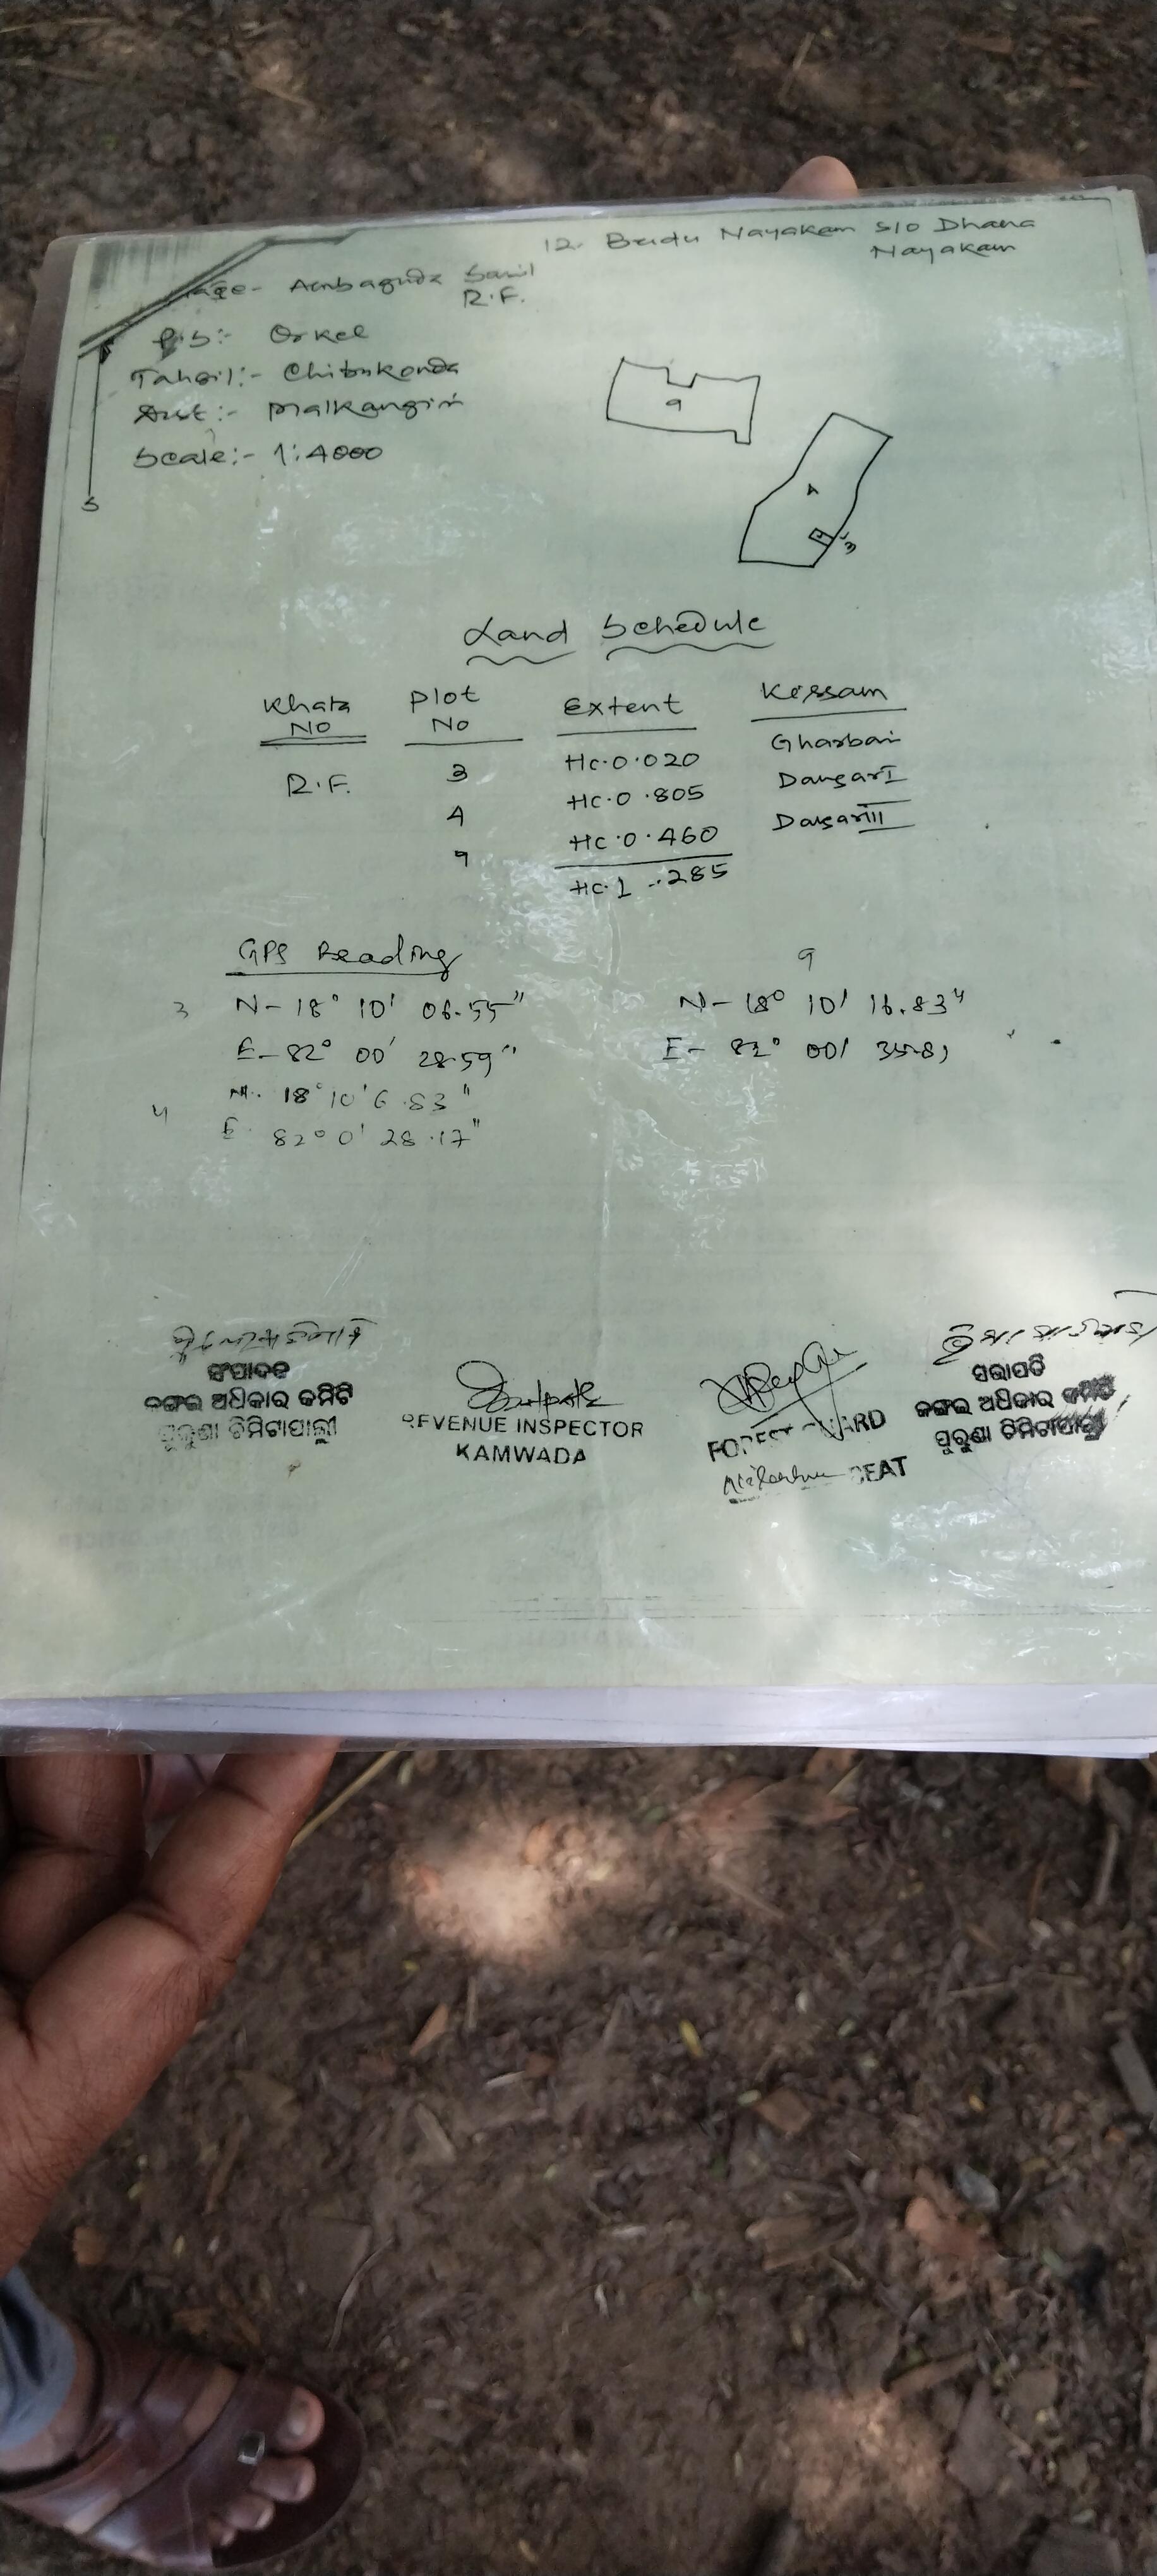 12. Budu Nayakam S/O Dhana
Nayakam
Ambaguda
R.F.
P.S:- Orkel
Tahsil:- Chitrakonda
Dist:- Malkangiri
Scale:- 1:4000
S
9
4
3
Land Schedule
Khata No
Plot No
Extent
Kissam
R.F.
3 Hc.0.020 Gharbari
4 Hc.0.805 Dangar I
9 Hc.0.460 Dangar III
Hc.1.285
GPS Reading
3 N- 18° 10' 06.55"
E- 82° 00' 28.59"
4 N. 18° 10' 6.83"
E. 82° 0' 28.17"
9
N- 18° 10' 16.83"
E- 82° 00'
ସଂପାଦକ
ଜଙ୍ଗଲ ଅଧିକାର କମିଟି
ପୁରୁଣା ଚିମିଟାପାଲ୍ଲୀ
REVENUE INSPECTOR
KAMWADA
FOREST GUARD
BEAT
ସଭାପତି
ଜଙ୍ଗଲ ଅଧିକାର କମିଟି
ପୁରୁଣା ଚିମିଟାପାଲ୍ଲୀ